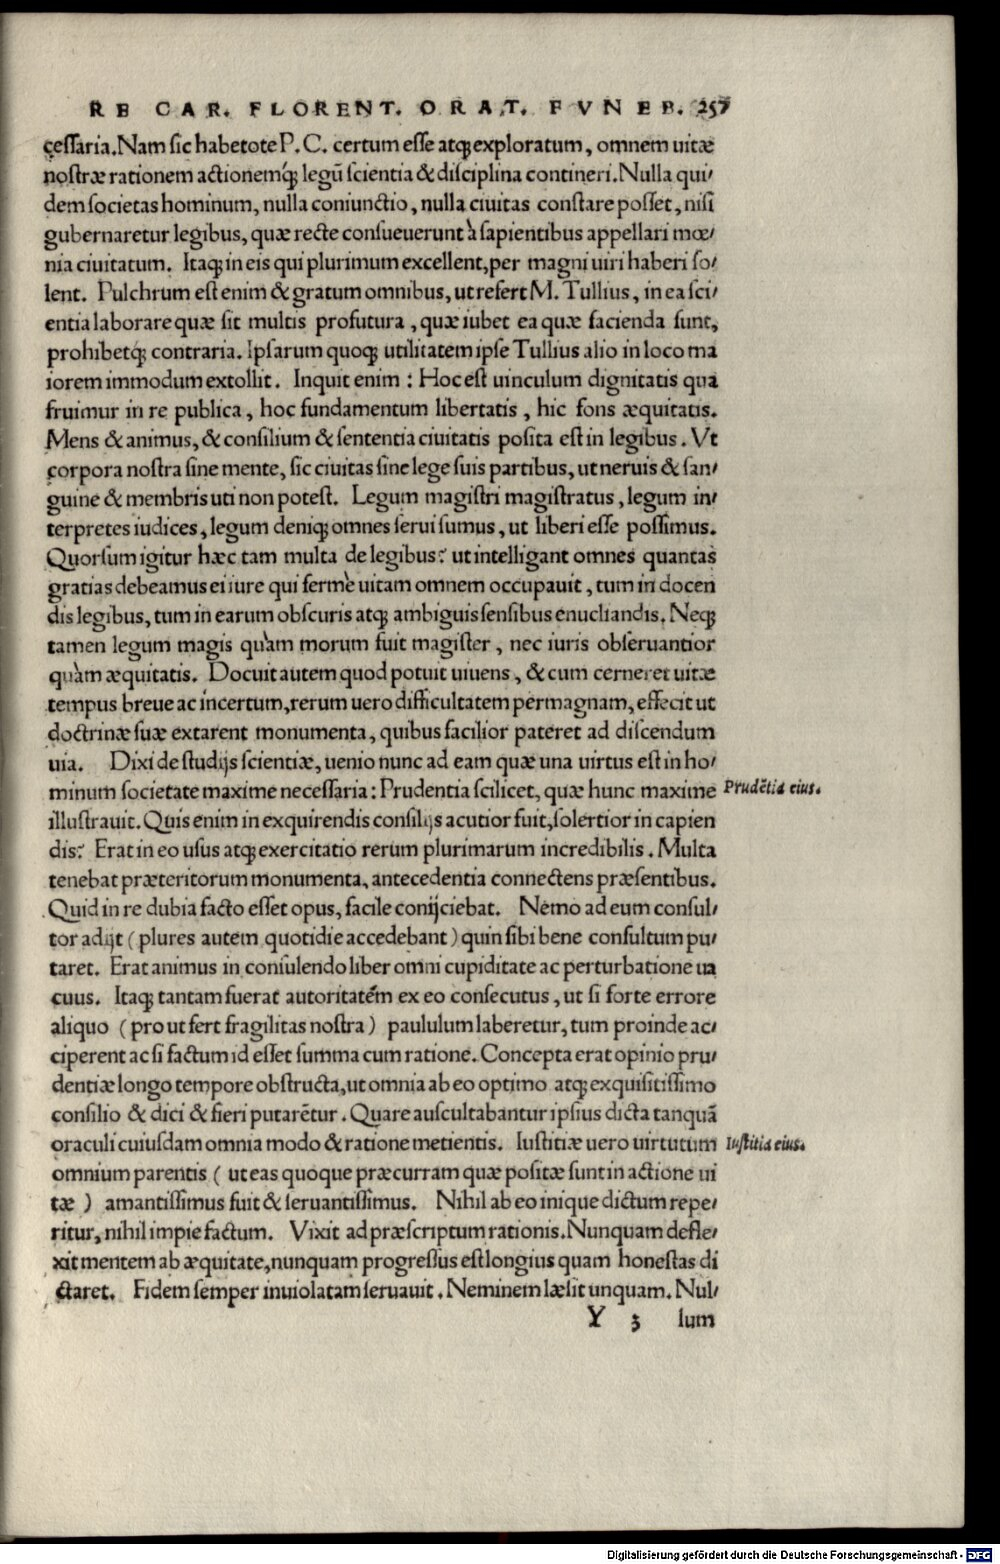 RE CAR. FLORENT. ORAT. FVNEB. 257
cessaria. Nam sic habetote P. C. certum esse atq; exploratum, omnem uitæ
nostræ rationem actionemq́; legū scientia & disciplina contineri. Nulla qui/
dem societas hominum, nulla coniunctio, nulla ciuitas constare posset, nisi
gubernaretur legibus, quæ recte consueuerunt à sapientibus appellari mœ/
nia ciuitatum. Itaq; in eis qui plurimum excellent, per magni uiri haberi so/
lent. Pulchrum est enim & gratum omnibus, ut refert M. Tullius, in ea sci/
entia laborare quæ sit multis profutura, quæ iubet ea quæ facienda sunt,
prohibetq́; contraria. Ipsarum quoq; utilitatem ipse Tullius alio in loco ma
iorem immodum extollit. Inquit enim: Hoc est uinculum dignitatis qua
fruimur in re publica, hoc fundamentum libertatis, hic fons æquitatis.
Mens & animus, & consilium & sententia ciuitatis posita est in legibus. Vt
corpora nostra sine mente, sic ciuitas sine lege suis partibus, ut neruis & san/
guine & membris uti non potest. Legum magistri magistratus, legum in/
terpretes iudices, legum deniq; omnes serui sumus, ut liberi esse possimus.
Quorsum igitur hæc tam multa de legibus? ut intelligant omnes quantas
gratias debeamus ei iure qui fermè uitam omnem occupauit, tum in docen
dis legibus, tum in earum obscuris atq; ambiguis sensibus enucliandis. Neq;
tamen legum magis quàm morum fuit magister, nec iuris obseruantior
quàm æquitatis. Docuit autem quod potuit uiuens, & cum cerneret uitæ
tempus breue ac incertum, rerum uero difficultatem permagnam, effecit ut
doctrinæ suæ extarent monumenta, quibus facilior pateret ad discendum
uia. Dixi de studijs scientiæ, uenio nunc ad eam quæ una uirtus est in ho/
minum societate maxime necessaria: Prudentia scilicet, quæ hunc maxime Prudētia eius.
illustrauit. Quis enim in exquirendis consilijs acutior fuit, solertior in capien
dis? Erat in eo usus atq; exercitatio rerum plurimarum incredibilis. Multa
tenebat præteritorum monumenta, antecedentia connectens præsentibus.
Quid in re dubia facto esset opus, facile conijciebat. Nemo ad eum consul/
tor adijt (plures autem quotidie accedebant) quin sibi bene consultum pu/
taret. Erat animus in consulendo liber omni cupiditate ac perturbatione ua
cuus. Itaq; tantam fuerat autoritatēm ex eo consecutus, ut si forte errore
aliquo (prout fert fragilitas nostra) paululum laberetur, tum proinde ac/
ciperent ac si factum id esset summa cum ratione. Concepta erat opinio pru/
dentiæ longo tempore obstructa, ut omnia ab eo optimo atq; exquisitissimo
consilio & dici & fieri putarētur. Quare auscultabantur ipsius dicta tanquā
oraculi cuiusdam omnia modo & ratione metientis. Iustitiæ uero uirtutum Iustitia eius.
omnium parentis (ut eas quoque præcurram quæ positæ sunt in actione ui
tæ) amantissimus fuit & seruantissimus. Nihil ab eo inique dictum repe/
ritur, nihil impie factum. Vixit ad præscriptum rationis. Nunquam defle/
xit mentem ab æquitate, nunquam progressus est longius quam honestas di
ctaret. Fidem semper inuiolatam seruauit. Neminem læsit unquam. Nul/
Y 3 lum
Digitalisierung gefördert durch die Deutsche Forschungsgemeinschaft - DFG